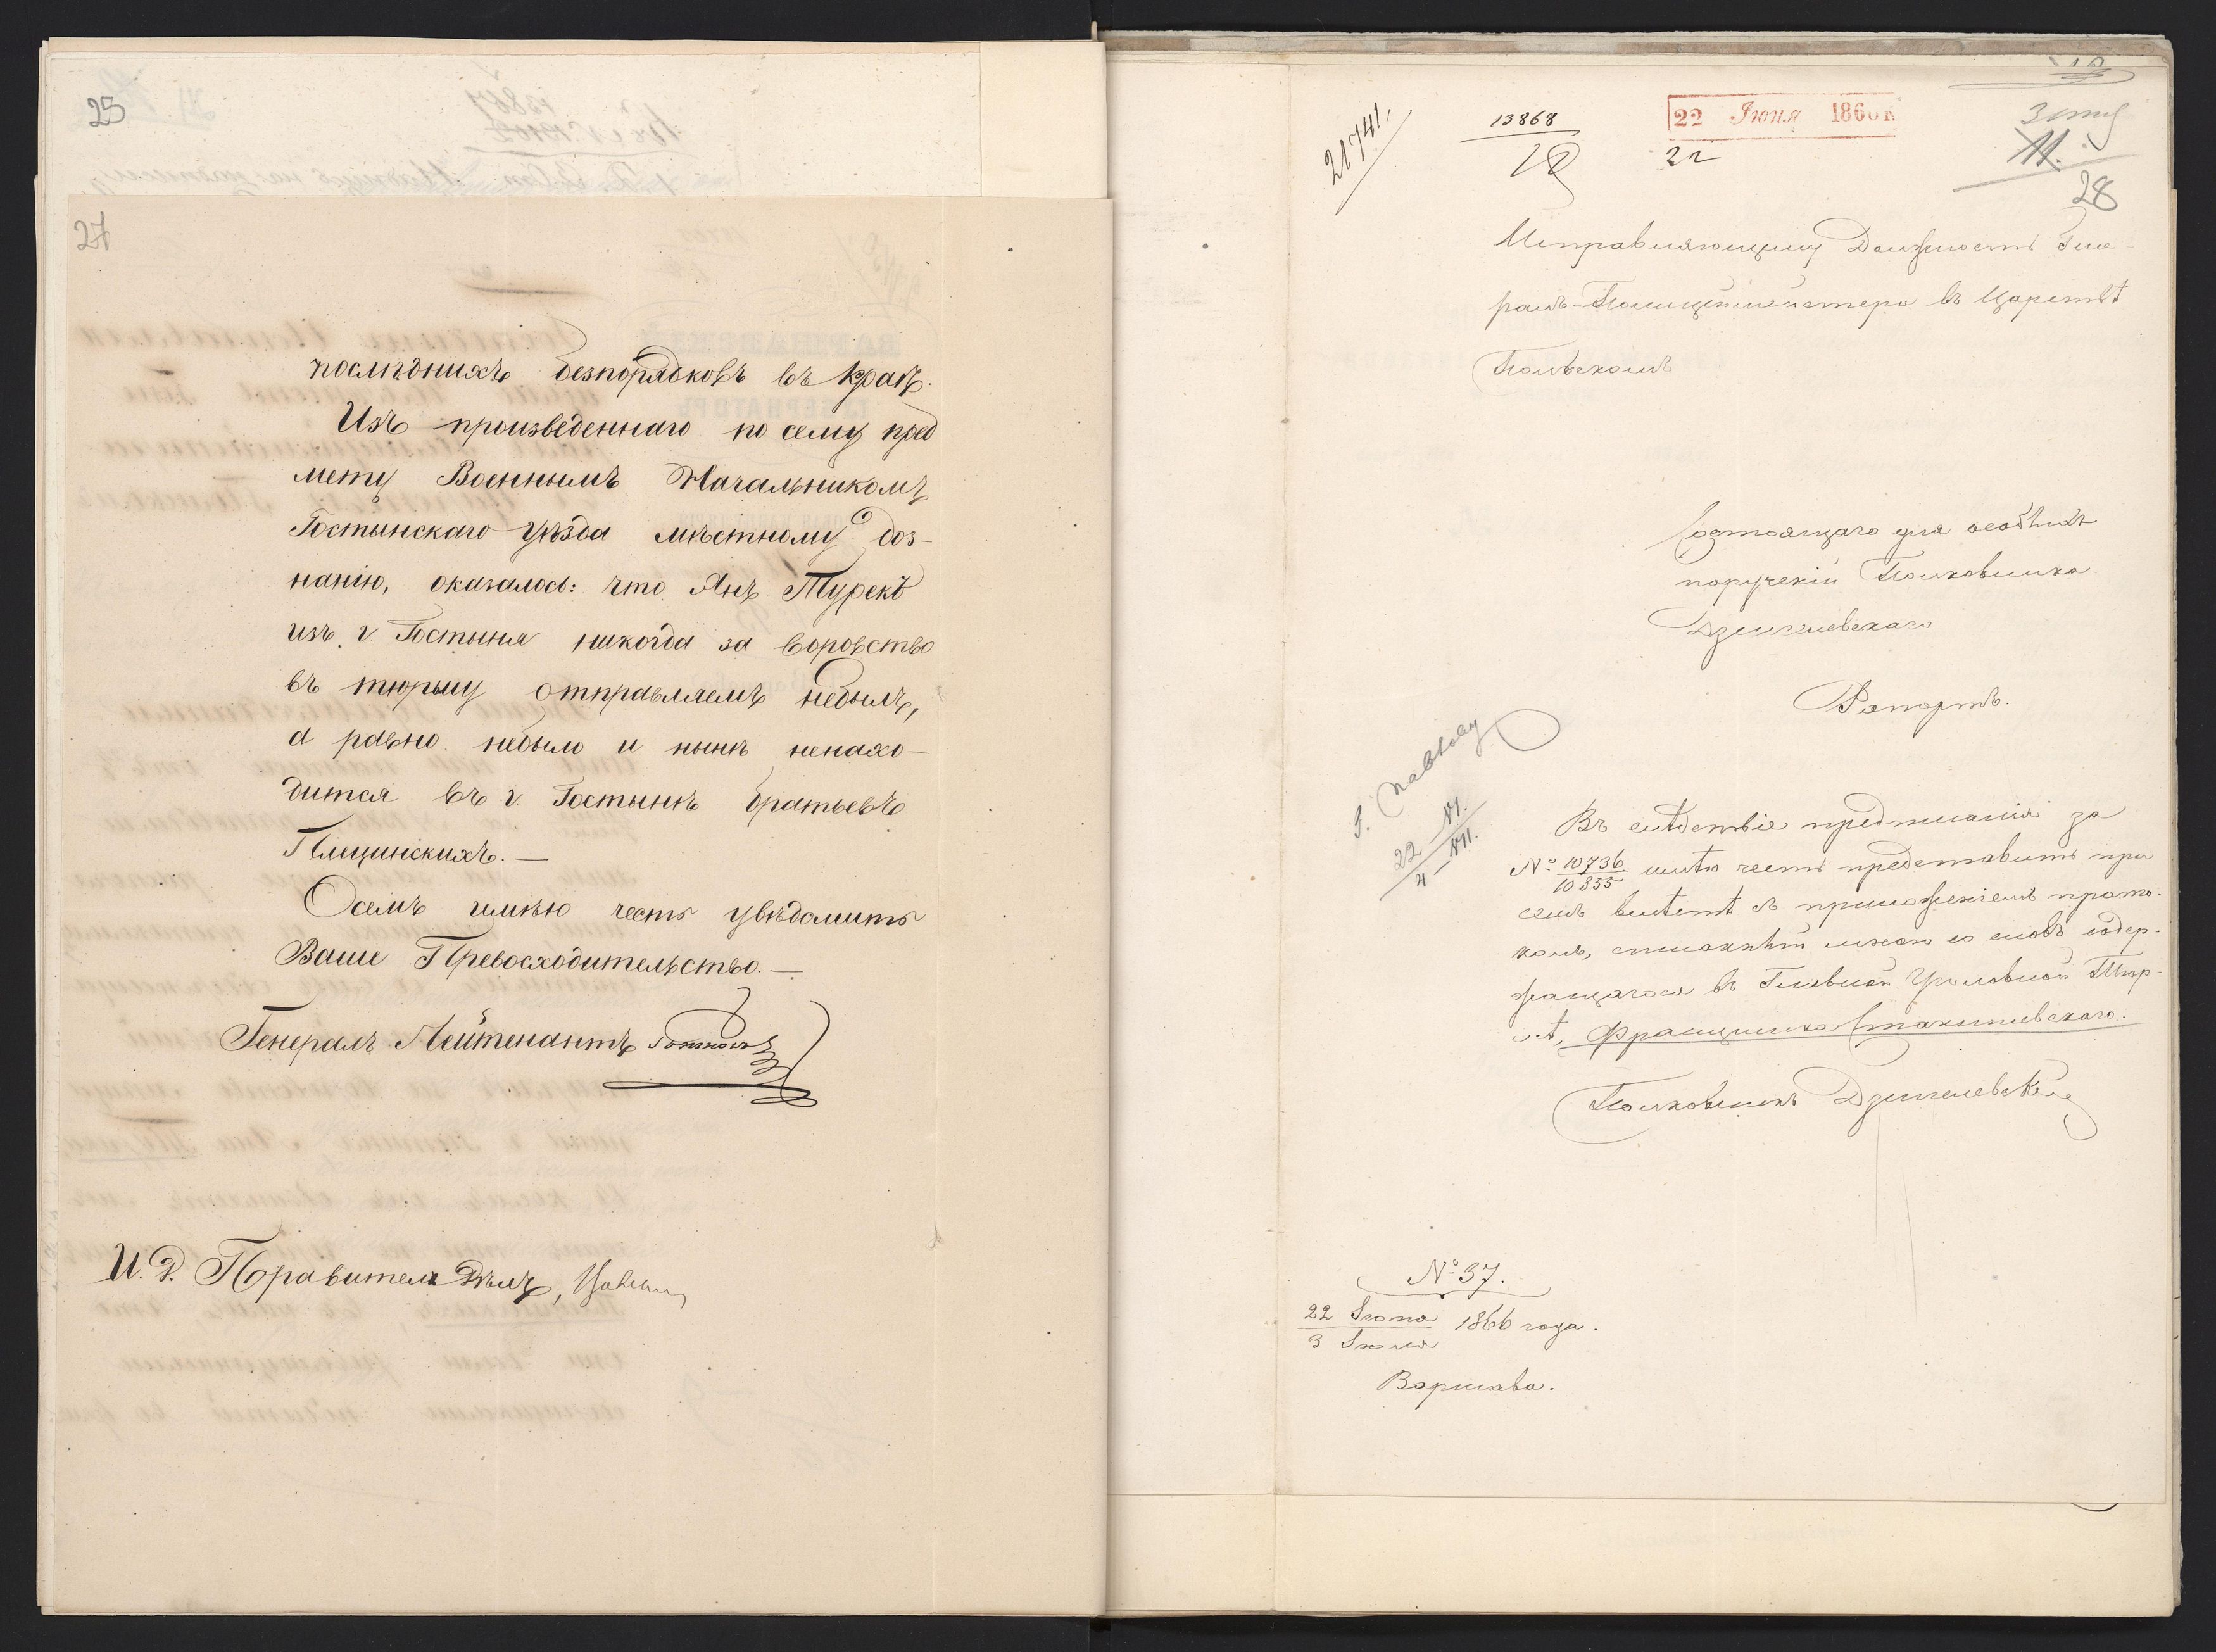 25
27
послѣднихъ безпорядковъ въ краѣ.
Изъ произведеннаго по сему пред
мету Военнымъ Начальникомъ
Гостынскаго уѣзда мѣстному доз-
нанію, оказалось: что Янъ Турекъ
изъ г. Гостыня никогда за воровство
въ тюрьму отправляемъ небылъ,
а равно небыло и нынѣ ненахо-
дится въ г. Гостынѣ братьевъ
О семъ имѣю честь увѣдомить
Ваше Превосходительство. —
Генералъ Лейтенантъ
И. Д. Правителя Дѣлъ,
21741.
13868
22 Іюня 1866
22
11.
28
Исправляющему Должность Гене-
ралъ-Полицiймейстера въ Царствѣ
Польскомъ
Состоящаго для особыхъ
порученій Полковника
Дзенгелевскаго
Рапортъ.
Г. Павлову
22 VI.
4 VII.
Въ слѣдствіе предписанія за
№ 10736
10855 имѣю честь представить при
семъ вмѣстѣ съ приложеніемъ прото-
колъ, списанный мною со словъ содер-
жащагося въ Главной Уголовной Тюрь-
мѣ, Францишка
Полковникъ Дзенгелевскій
№ 37.
22 Іюня
3 Іюля 1866 года.
Варшава.